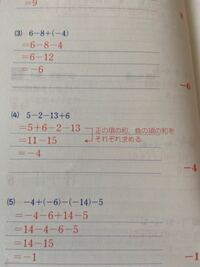 =9
(3) 6−8+(−4)
=6−8−4
=6−12
=−6
−6
(4) 5−2−13+6
=5+6−2−13 正の項の和、負の項の和を
=11−15 それぞれ求める。
=−4
−4
(5) −4+(−6)−(−14)−5
=−4−6+14−5
=14−4−6−5
=14−15
=−1
−1